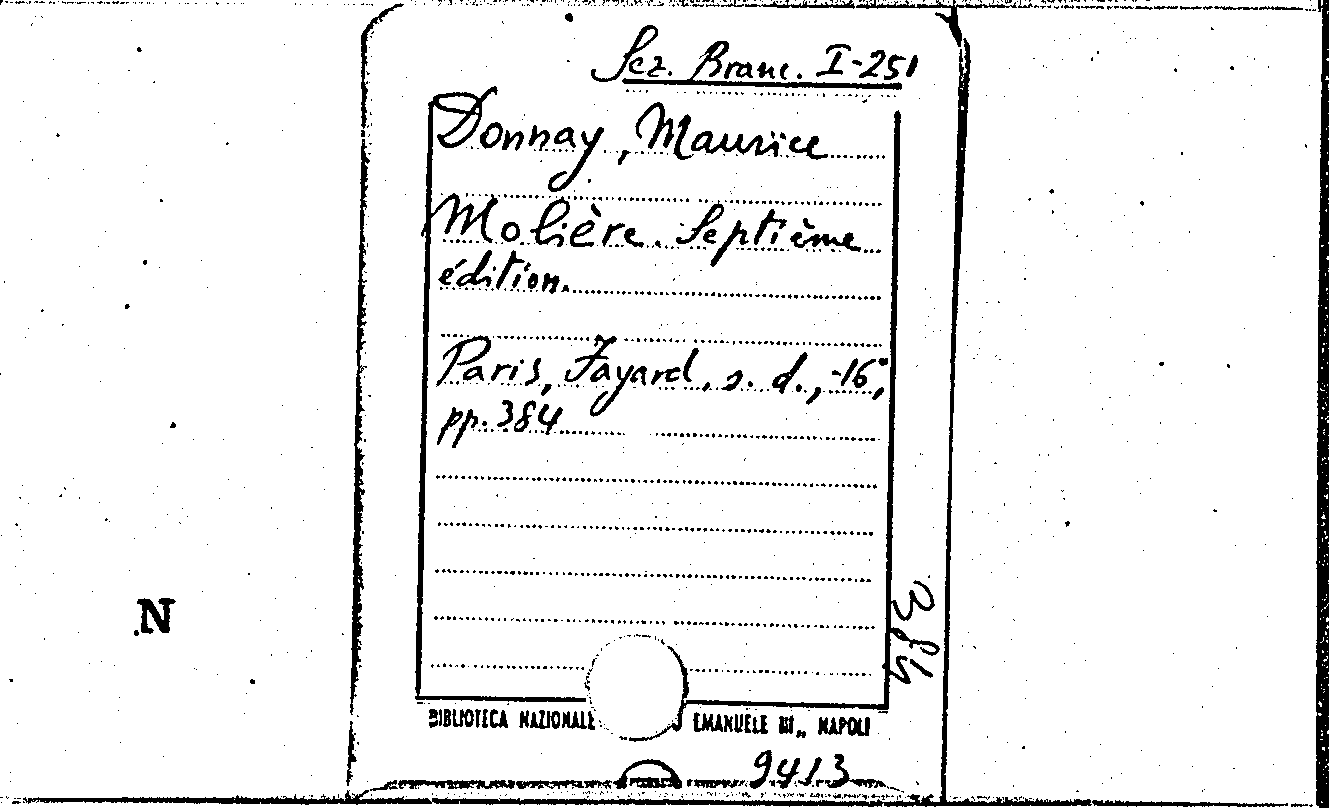 Sez. Branc. I-251
Donnay, Maurice
Molière. Septième
édition.
Paris, Fayard, s. d., -16°,
pp. 384
384
N
BIBLIOTECA NAZIONALE EMANUELE III„ NAPOLI
9413